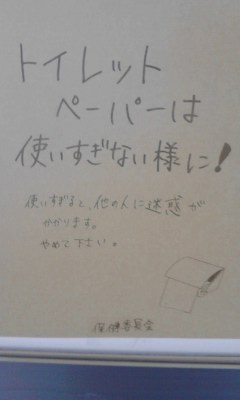 トイレット
ペーパーは
使いすぎない様に!
使いすぎると、他の人に迷惑が
かかります。
やめて下さい。
保健委員会